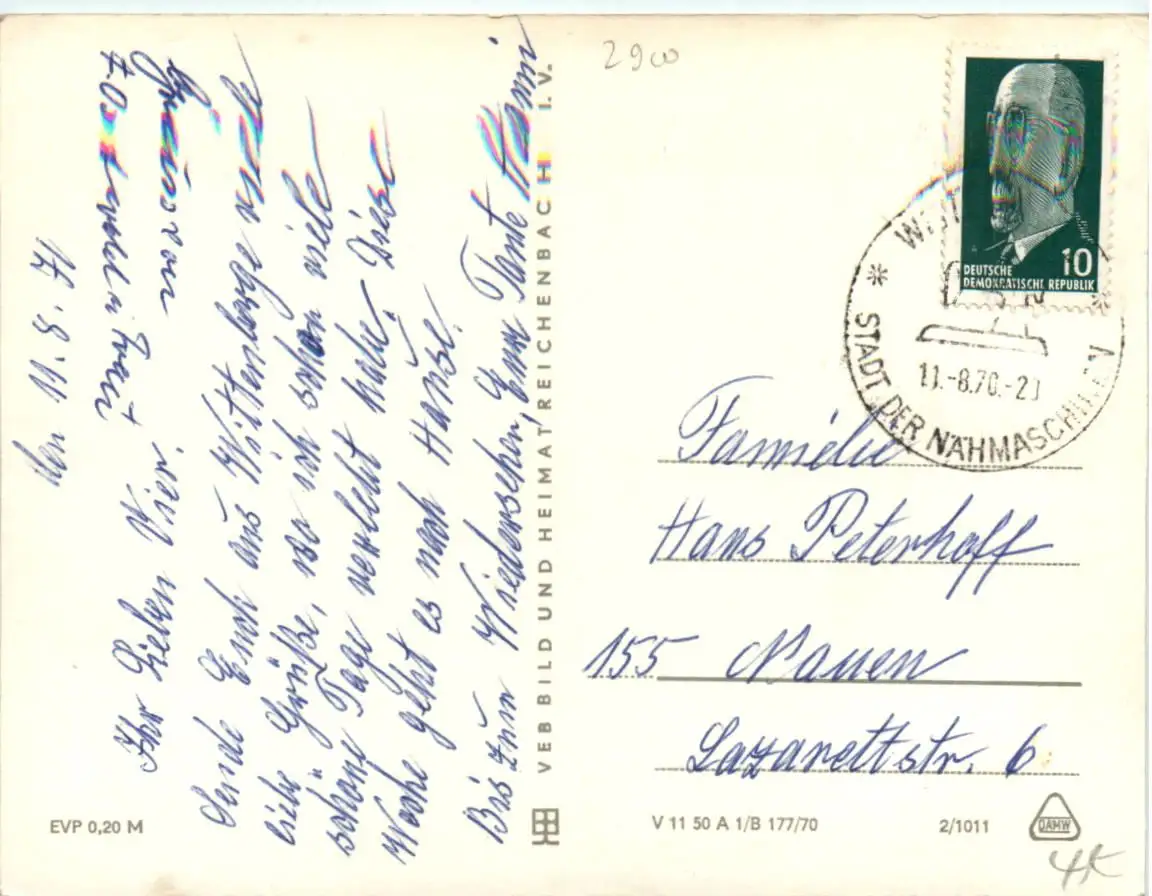 den 11.8.71
Ihr Lieben Vier.
Sende Euch aus Wittenberge viele
liebe Grüße, wo ich schon viele
schöne Tage verlebt habe. Diese
Woche geht es nach Hause.
Bis zum Wiedersehen, Eure Tante
EVP 0,20 M
VEB BILD UND HEIMAT REICHENBACH I.V.
2900
DEUTSCHE
DEMOKRATISCHE REPUBLIK
10
STADT DER
11.-8.70.-2
Familie
Hans Peterhoff
155 Nauen
Lazarettstr. 6
V 11 50 A 1/B 177/70
2/1011
DAMW